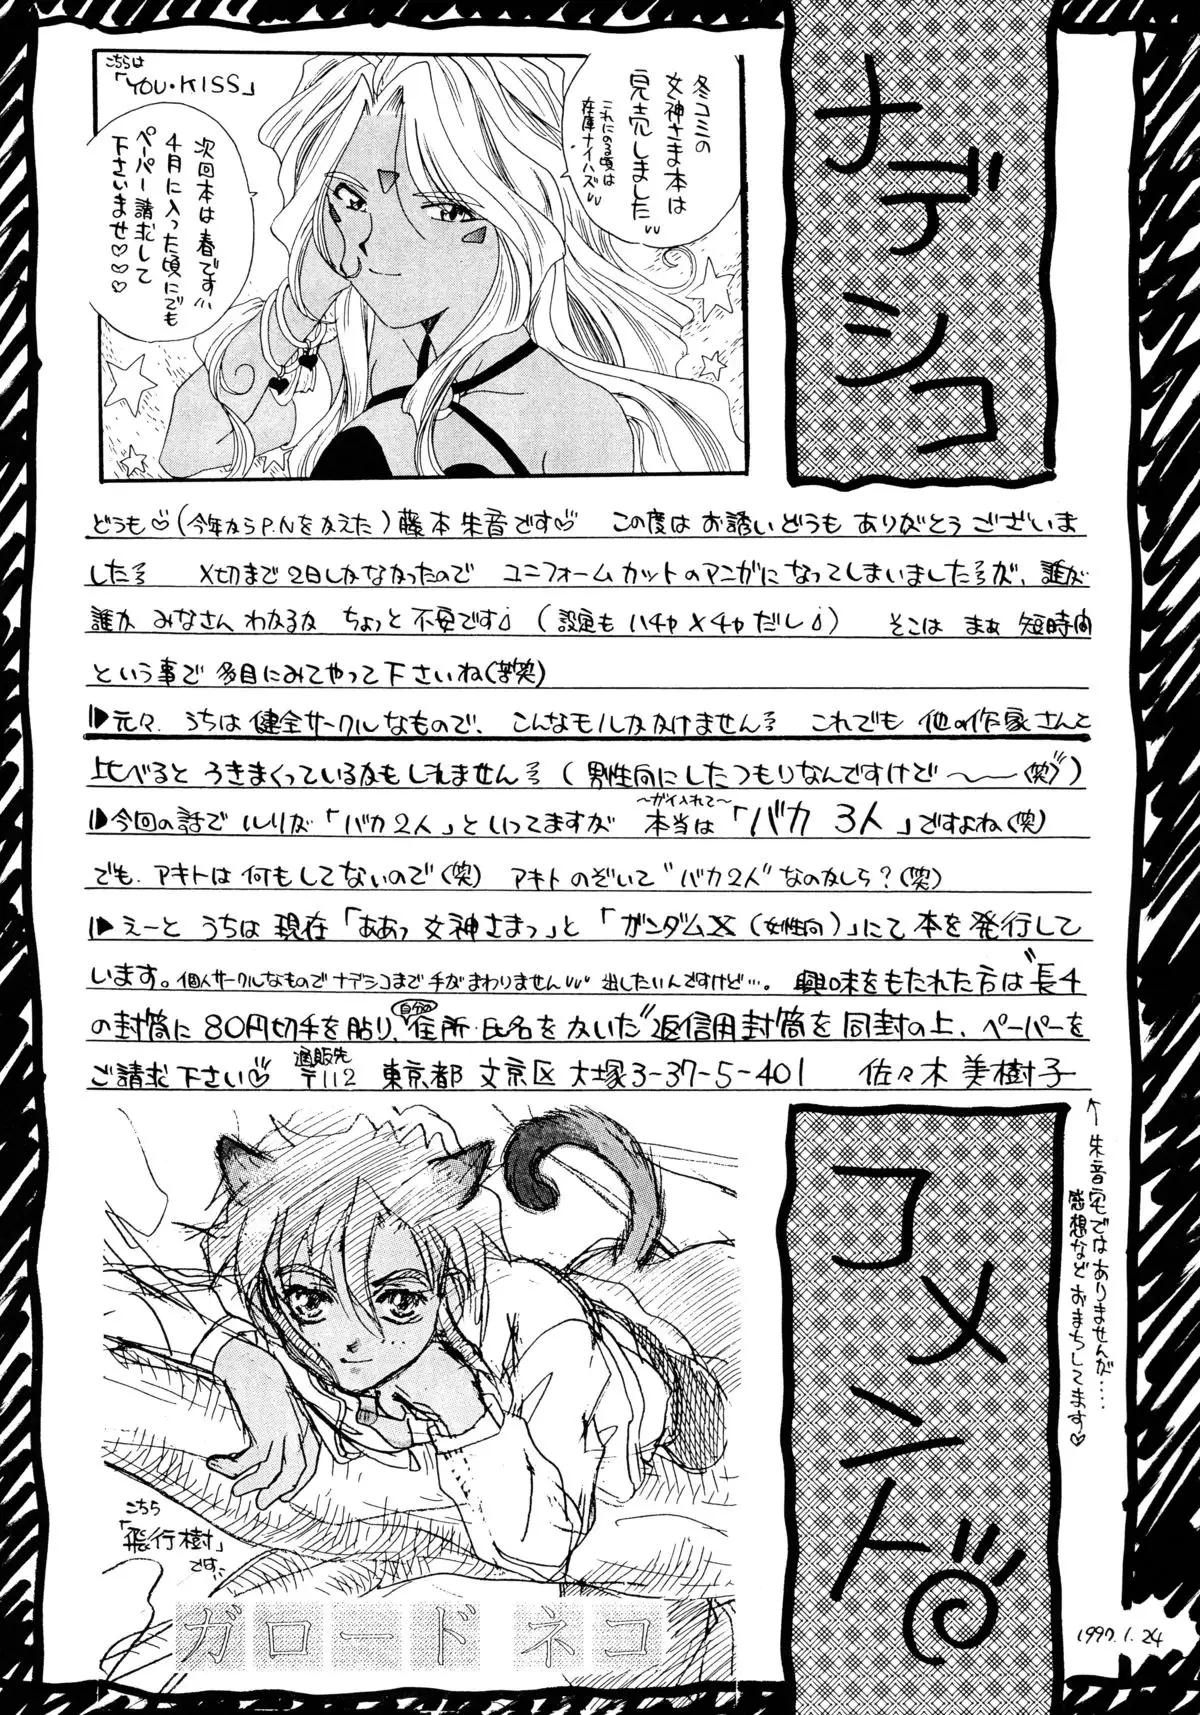 ナデシコ
冬コミの
女神さま本は
完売しました
これにのる頃は
在庫ナイハズ
こちらは
「YOU・KISS」
次回本は春です
4月に入った頃にでも
ペーパー請求して
下さいませ♡♡♡
どうも♡(今年からP.Nをかえた)藤本朱音です♡ この度はお誘いどうもありがとうございま
した 〆切まで2日しかなかったので ユニフォームカットのマンガになってしまいましたが、誰が
誰か みなさん わかるか ちょっと不安です(設定もハチャメチャだし) そこは まぁ 短時間
という事で 多目にみてやって下さいね(苦笑)
▶元々、うちは健全サークルなもので、こんなモノしかかけません これでも 他の作家さんと
比べると うきまくっているかもしれません (男性向にしたつもりなんですけど〜(笑))
▶今回の話で ルリが「バカ2人」といってますが 〜ガイ入れて〜 本当は「バカ 3人」ですよね(笑)
でも、アキトは何もしてないので(笑) アキトのぞいて"バカ2人"なのかしら?(笑)
▶えーと うちは現在「ああっ女神さまっ」と「ガンダムX(女性向)」にて本を発行して
います。個人サークルなものでナデシコまで手がまわりません 出したいんですけど…。 興味をもたれた方は"長4
の封筒に80円切手を貼り、自分の住所・氏名をかいた"返信用封筒を同封の上、ペーパーを
ご請求下さい♡ 通販先 〒112 東京都 文京区 大塚3-37-5-401 佐々木 美樹子
↑朱音宅ではありませんが……
感想などおまちしてます♡
コメント
こちら
「飛行樹」
です
ガロード ネコ
1997.1.24